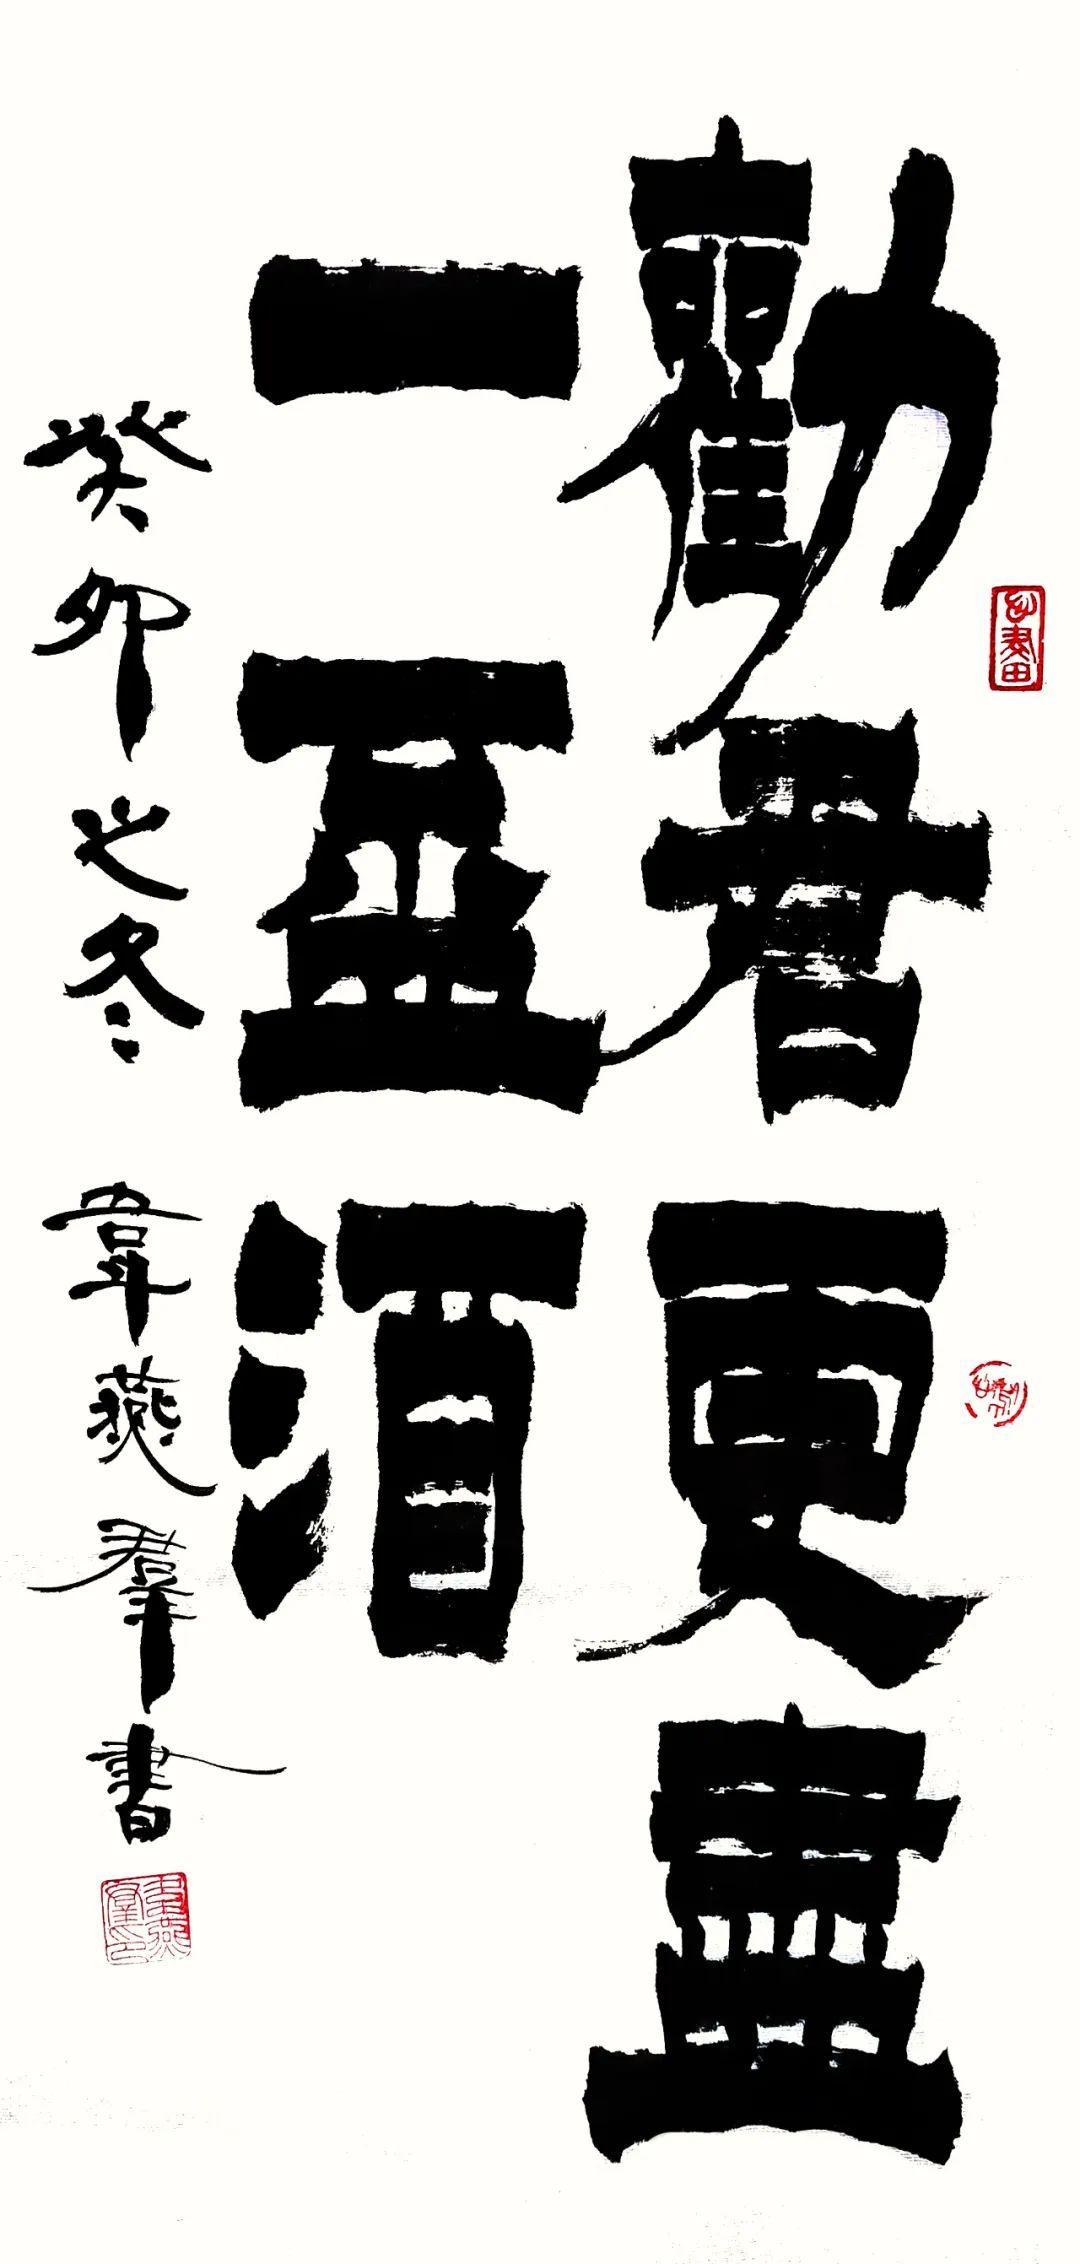 勸君更盡
一盃酒
癸卯之冬 韋燕羣書